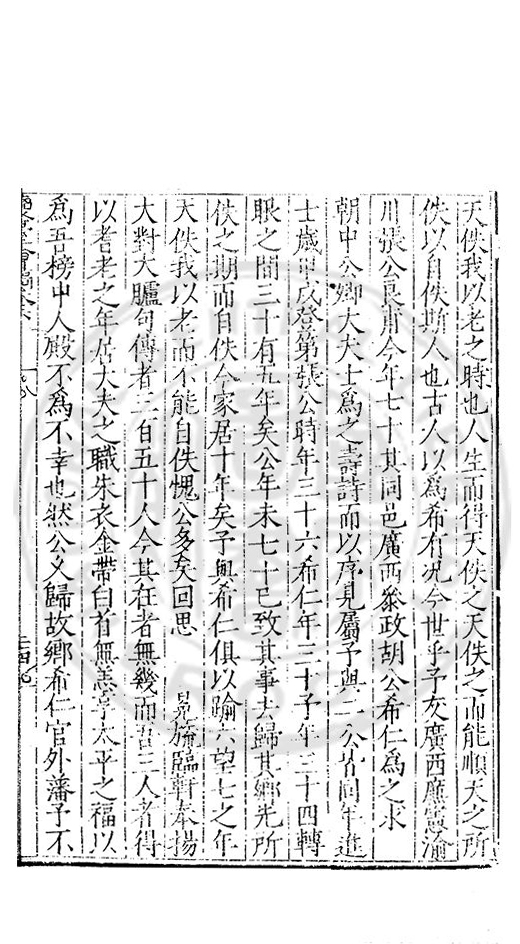 天佚我以老之時也人生而得天佚之天佚之而能順天之所
佚以自佚斯人也古人以為希有况今世乎予友廣西廉憲渝
川張公良甫今年七十其同邑廣西叅政胡公希仁為之求
朝中公卿大夫士為之壽詩而以序見屬予與二公皆同年進
士歲甲戌登第張公時年三十六希仁年三十予年三十四轉
眼之間三十有五年矣公年未七十已致其事去歸其鄉先所
佚之期而自佚今家居十年矣予與希仁俱以踰六望七之年
天佚我以老而不能自佚愧公多矣回思
晃旒臨軒奉揚
大對大臚句傳者三百五十人今其在者無幾而吾三人者得
以耆老之年居大夫之職朱衣金帶白首無恙享太平之福以
為吾榜中人殿不為不幸也然公又歸故鄉希仁官外藩予不